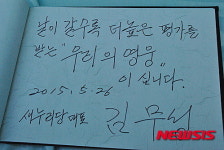 날이 갈수록 더높은 평가를
받는 "우리의 영웅"
이 십니다.
2015. 5. 26
새누리당대표 김무성
NEWSIS